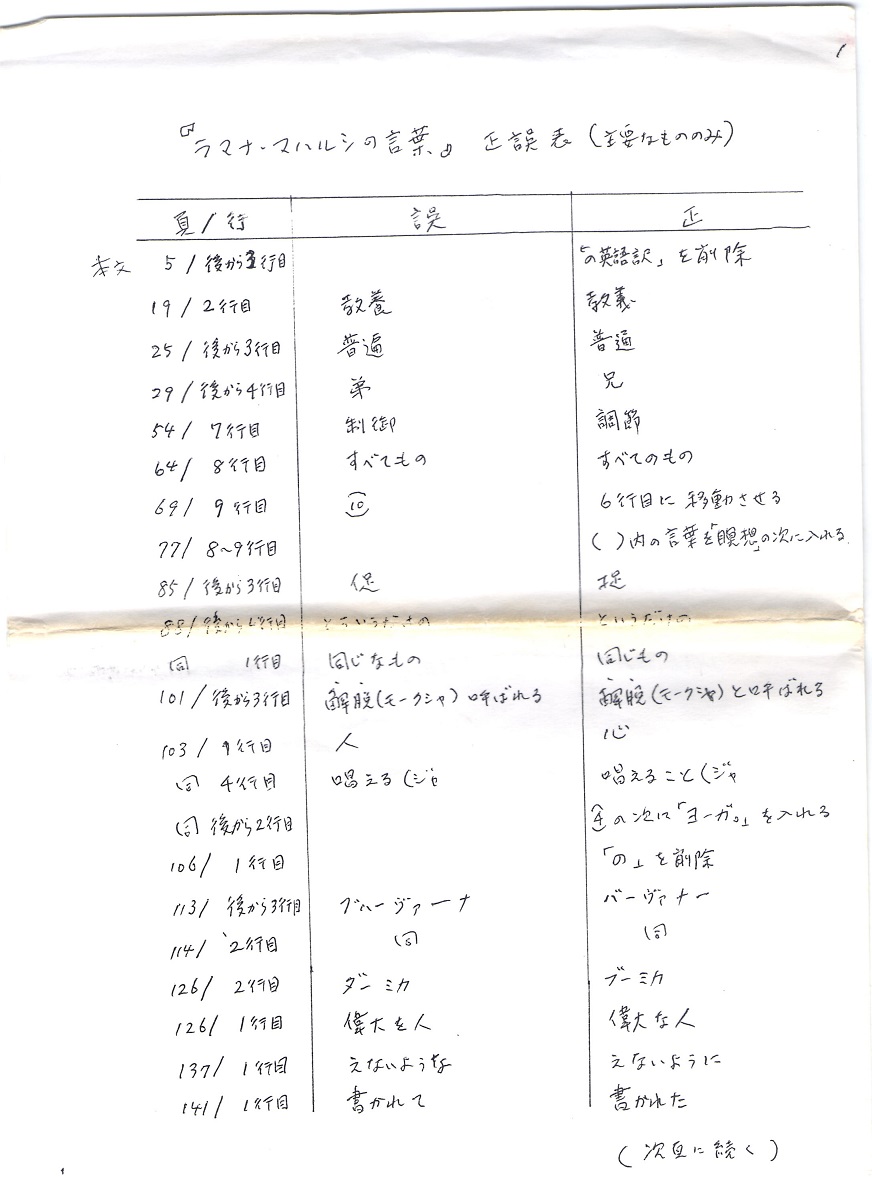 1
『ラマナ・マハルシの言葉』 正誤表 (主要なもののみ)
頁/行 誤 正
本文 5/後から 行目 「の英語訳」を削除
19/2行目 教養 教義
25/後から3行目 普遍 普通
29/後から4行目 弟 兄
54/7行目 制御 調節
64/8行目 すべてもの すべてのもの
69/9行目 (10) 6行目に移動させる
77/8~9行目 ( )内の言葉を「瞑想」の次に入れる
85/後から3行目 促 捉
88/後から 行目 というだけの
同 1行目 同じなもの 同じもの
101/後から3行目 解脱(モークシャ)呼ばれる 解脱(モークシャ)と呼ばれる
103/ 行目 人 心
同 4行目 唱える(ジャ 唱えること(ジャ
同 後から2行目 の次に「ヨーガ。」を入れる
106/1行目 「の」を削除
113/後から3行目 ブハーヴァーナ バーヴァナー
114/2行目 同 同
126/2行目 ダーミカ ブーミカ
126/1行目 偉大を人 偉大な人
137/1行目 えないような えないように
141/1行目 書かれて 書かれた
(次頁に続く)